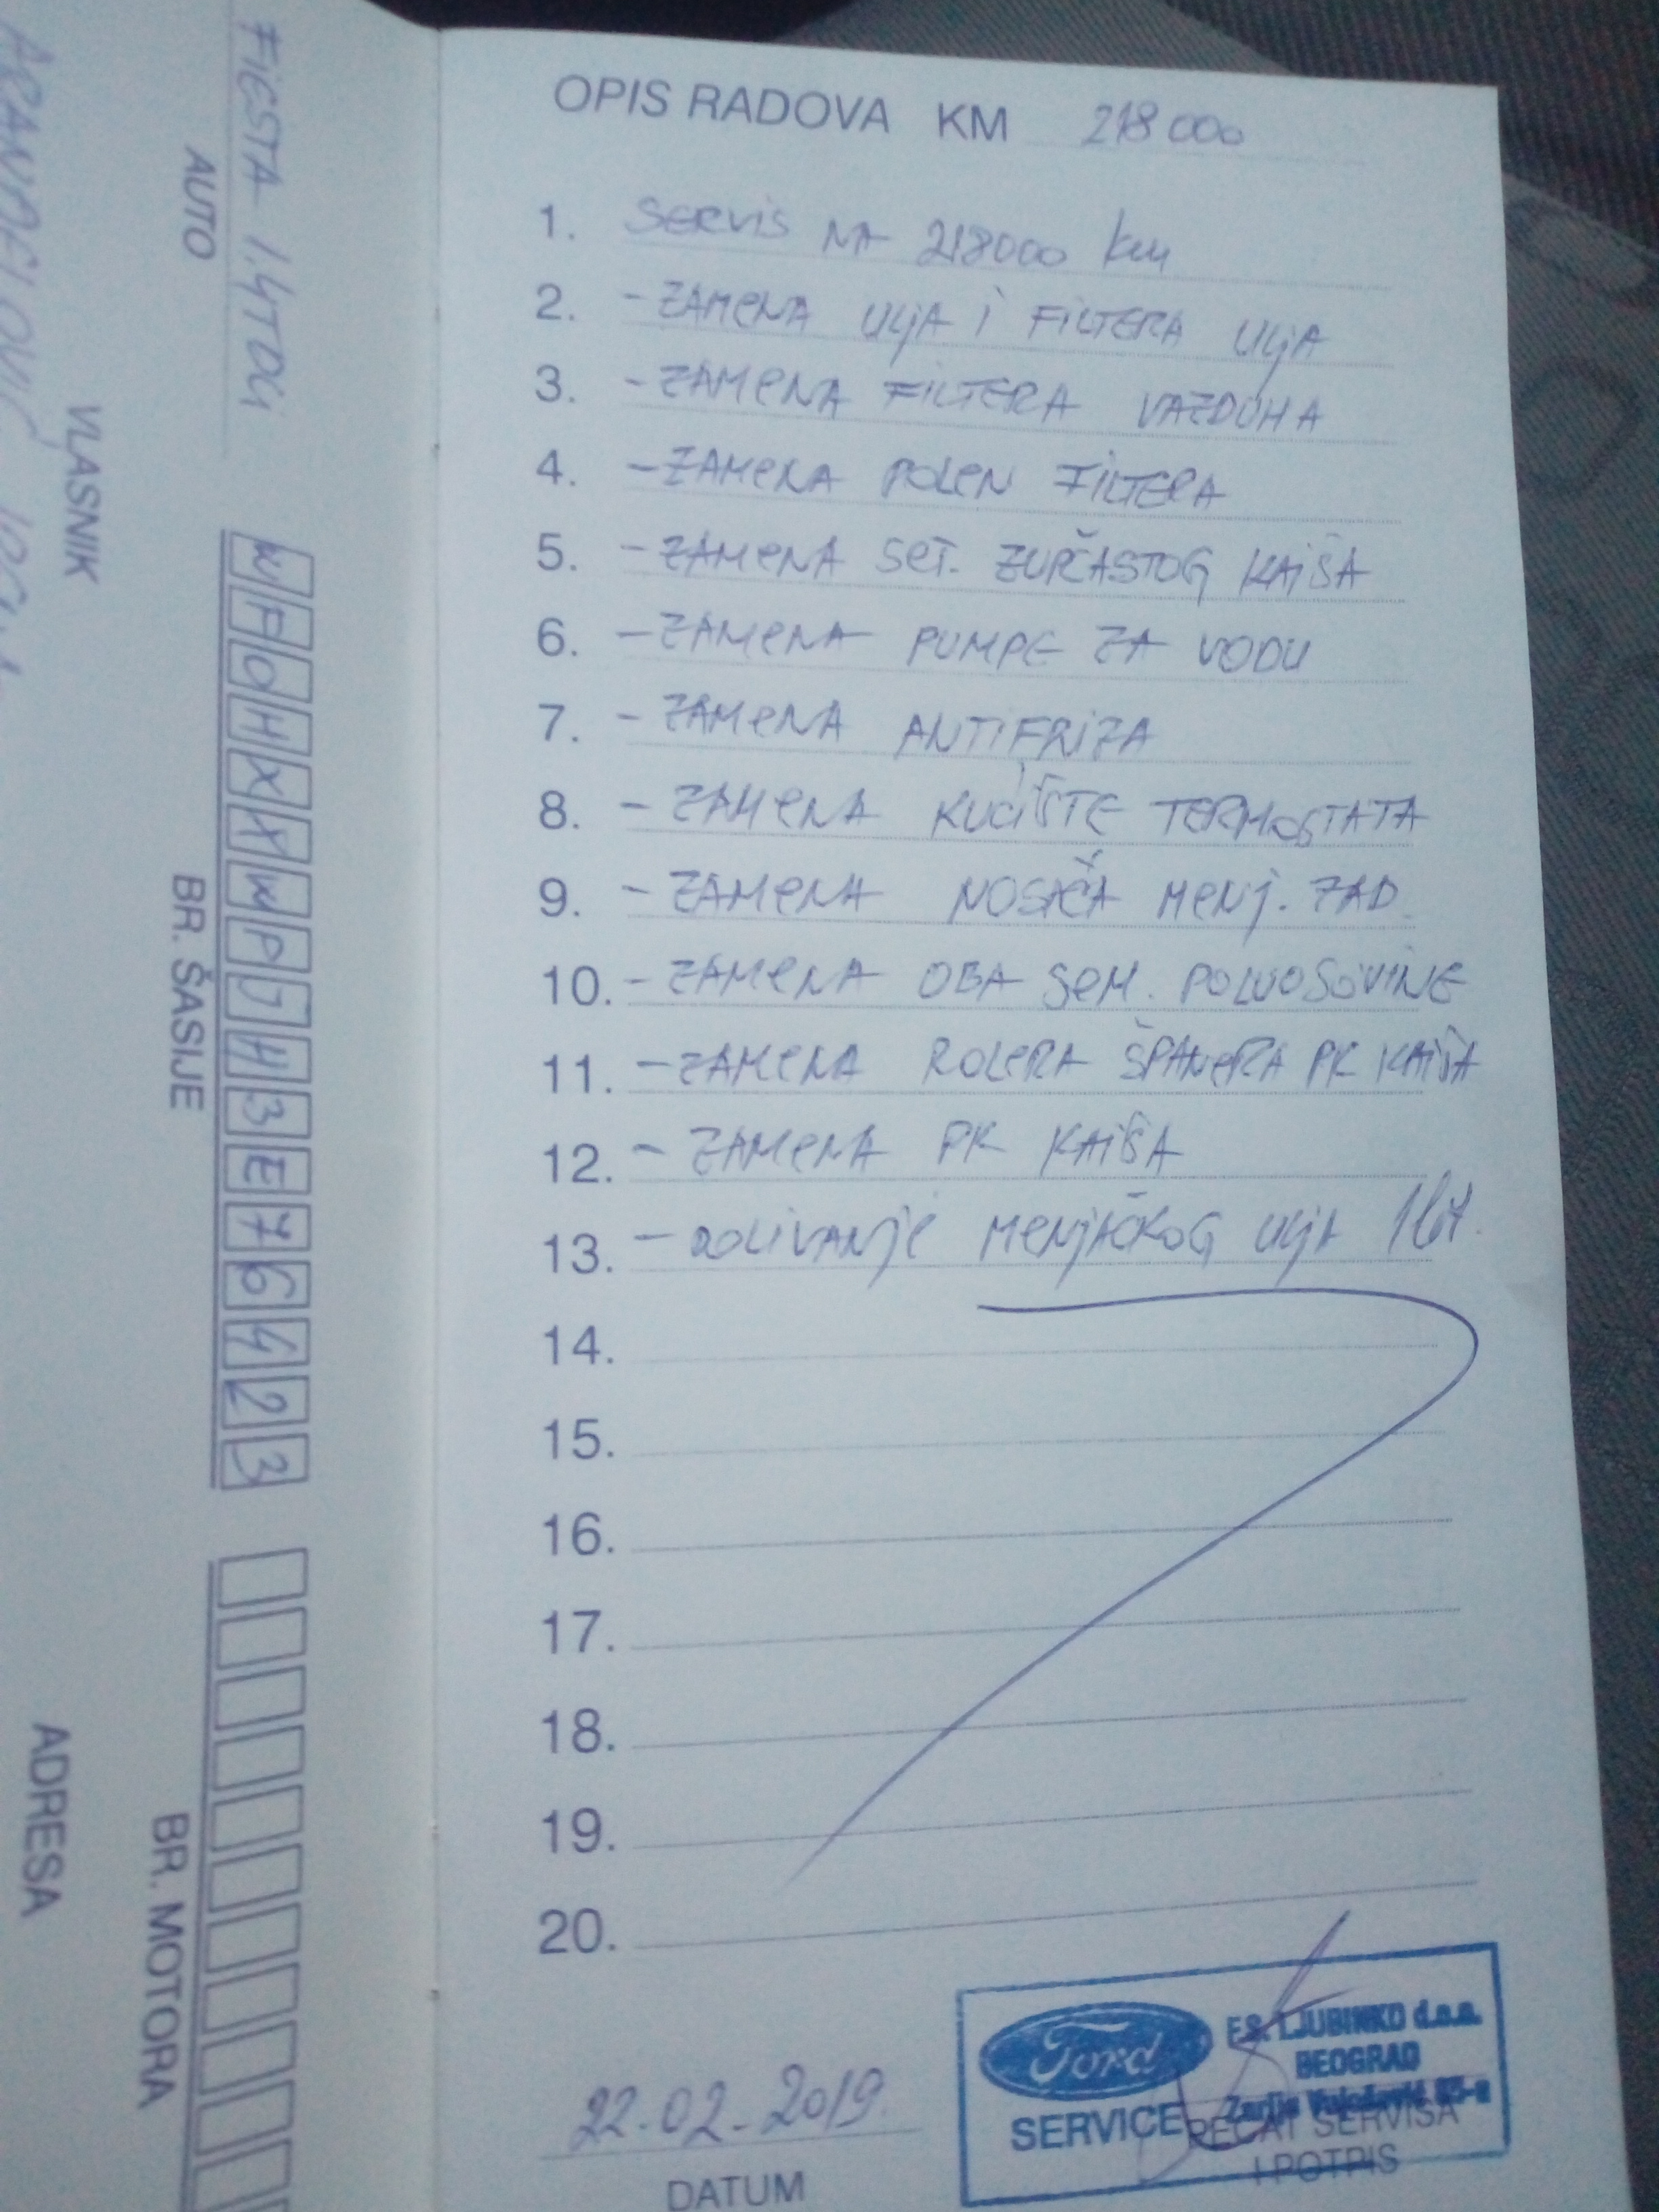 OPIS RADOVA KM 218 000
1. SERVIS NA 218000 km
2. - ZAMENA ULJA I FILTERA ULJA
3. - ZAMENA FILTERA VAZDUHA
4. - ZAMENA POLEN FILTERA
5. - ZAMENA SET. ZUPČASTOG KAIŠA
6. - ZAMENA PUMPE ZA VODU
7. - ZAMENA ANTIFRIZA
8. - ZAMENA KUĆIŠTE TERMOSTATA
9. - ZAMENA NOSAČA MENJ. ZAD.
10. - ZAMENA OBA SEM. POLUOSOVINE
11. - ZAMENA ROLERA ŠPANERA PK KAIŠA
12. - ZAMENA PK KAIŠA
13. - DOLIVANJE MENJAČKOG ULJA
14.
15.
16.
17.
18.
19.
20.
22.02.2019.
DATUM
Ford
SERVICE
F.S. LJUBINKO d.o.o.
BEOGRAD
PEČAT SERVISA
I POTPIS
FIESTA 1.4TDCi
AUTO
WF0HXXWPJH3E76423
BR. ŠASIJE
BR. MOTORA
VLASNIK
ADRESA